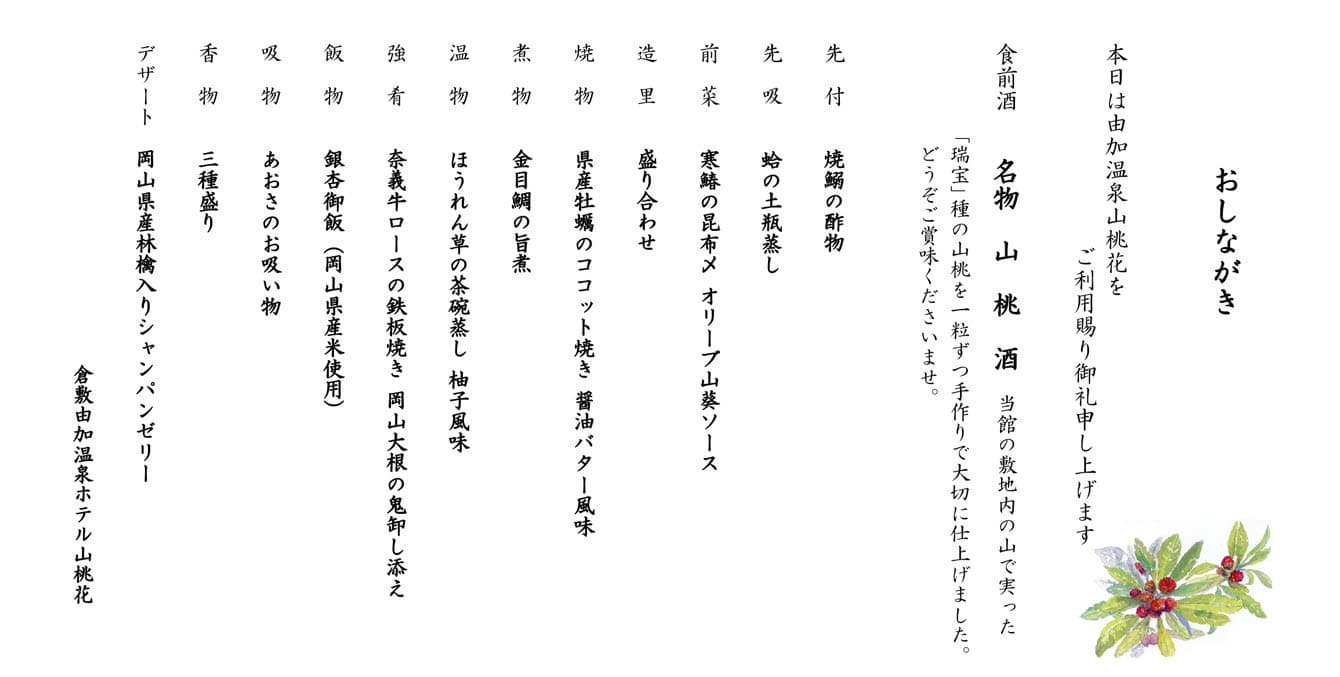 おしながき
本日は由加温泉山桃花を
ご利用賜り御礼申し上げます
食前酒 名物 山桃酒 当館の敷地内の山で実った
「瑞宝」種の山桃を一粒ずつ手作りで大切に仕上げました。
どうぞご賞味くださいませ。
先付 焼鰯の酢物
先吸 蛤の土瓶蒸し
前菜 寒鰆の昆布〆 オリーブ山葵ソース
造里 盛り合わせ
焼物 県産牡蠣のココット焼き 醤油バター風味
煮物 金目鯛の旨煮
温物 ほうれん草の茶碗蒸し 柚子風味
強肴 奈義牛ロースの鉄板焼き 岡山大根の鬼卸し添え
飯物 銀杏御飯（岡山県産米使用）
吸物 あおさのお吸い物
香物 三種盛り
デザート 岡山県産林檎入りシャンパンゼリー
倉敷由加温泉ホテル山桃花